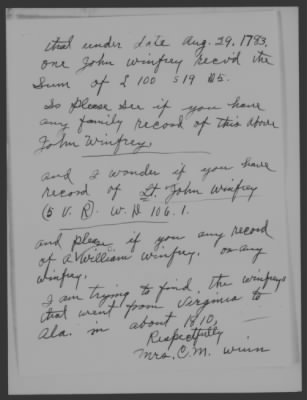 that under date Aug. 29, 1783,
one John Winfrey rec'd the
Sum of £ 100 s 19 D5.
So please see if you have
any family record of this above
John Winfrey.
and I wonder if you have
record of Lt. John Winfrey
(5 V. R). W. D 106.1.
and please if you any record
of a William Winfrey. or any
Winfrey.
I am trying to find the Winfreys
that went from Virginia to
Ala. in about 1810,
Respectfully
Mrs. C. M. Winn